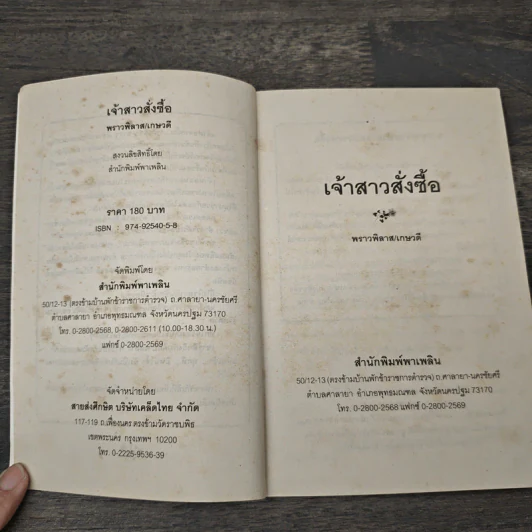 เจ้าสาวสั่งซื้อ
พราวพิลาส/เกษวดี
สงวนลิขสิทธิ์โดย
สำนักพิมพ์พาเพลิน
ราคา 180 บาท
ISBN : 974-92540-5-8
จัดพิมพ์โดย
สำนักพิมพ์พาเพลิน
50/12-13 (ตรงข้ามบ้านพักข้าราชการตำรวจ) ถ.ศาลายา-นครชัยศรี
ตำบลศาลายา อำเภอพุทธมณฑล จังหวัดนครปฐม 73170
โทร. 0-2800-2568, 0-2800-2611 (10.00-18.30 น.)
แฟกซ์ 0-2800-2569
จัดจำหน่ายโดย
สายส่งศึกษิต บริษัทเคล็ดไทย จำกัด
117-119 ถ.เฟื่องนคร ตรงข้ามวัดราชบพิธ
เขตพระนคร กรุงเทพฯ 10200
โทร. 0-2225-9536-39
เจ้าสาวสั่งซื้อ
พราวพิลาส/เกษวดี
สำนักพิมพ์พาเพลิน
50/12-13 (ตรงข้ามบ้านพักข้าราชการตำรวจ) ถ.ศาลายา-นครชัยศรี
ตำบลศาลายา อำเภอพุทธมณฑล จังหวัดนครปฐม 73170
โทร. 0-2800-2568 แฟกซ์ 0-2800-2569